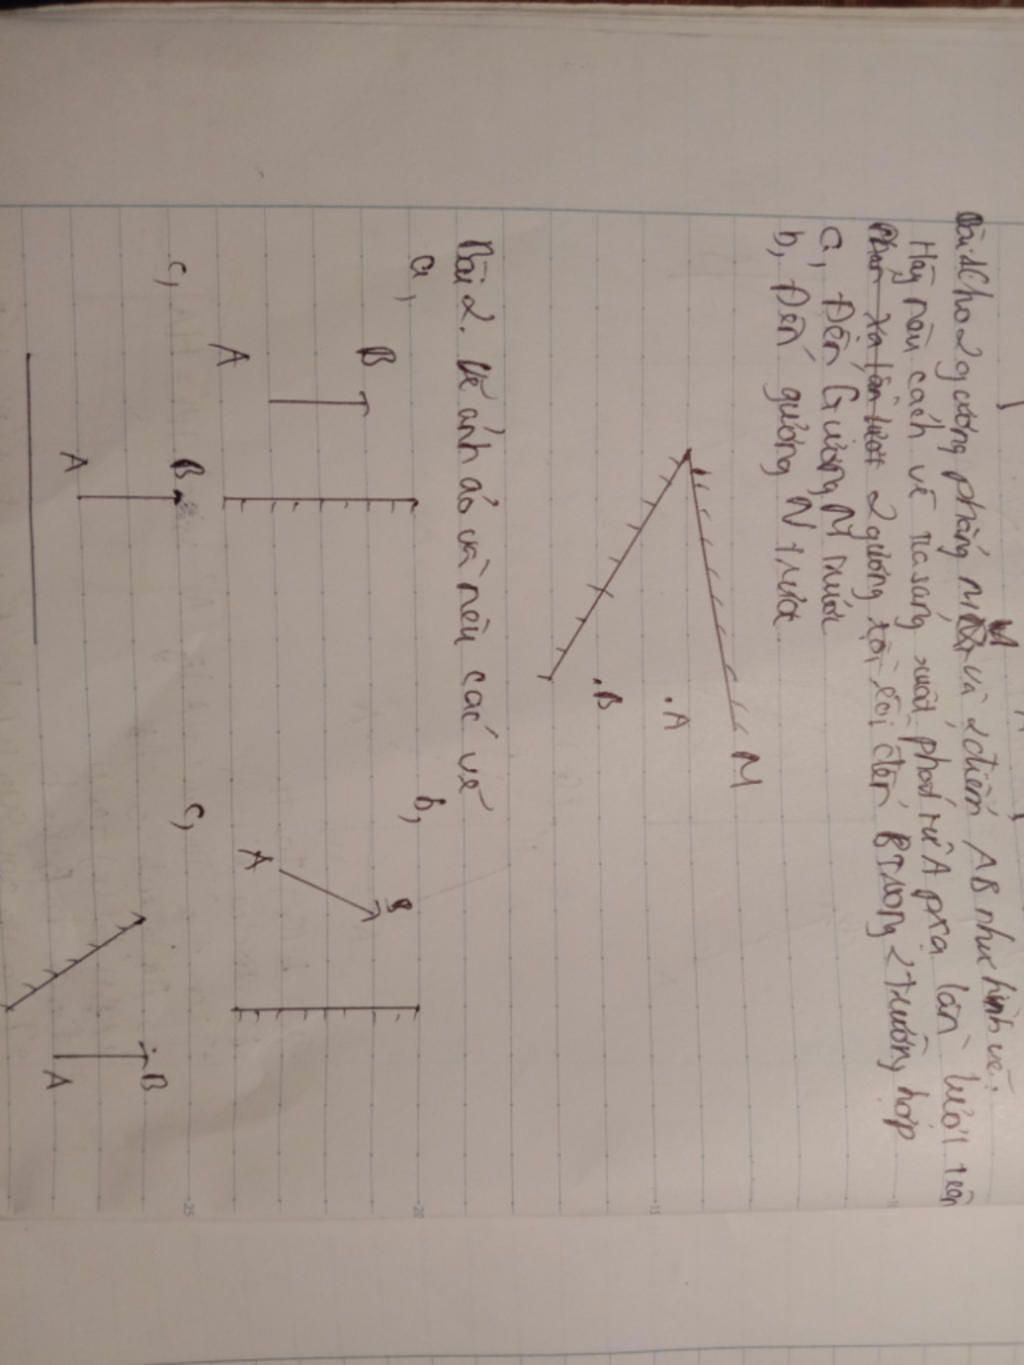 Bài 1 Cho 2 gương phẳng M, N và 2 điểm A B như hình vẽ.
Hãy nêu cách vẽ tia sáng xuất phát từ A phản xạ lần lượt trên
2 gương rồi đến B trong 2 trường hợp
a, Đến Gương M trước
b, Đến gương N trước
M
A
B
Bài 2. Vẽ ảnh ảo và nêu các vẽ
a,
b,
B
A
B
A
c,
c,
B
A
B
A